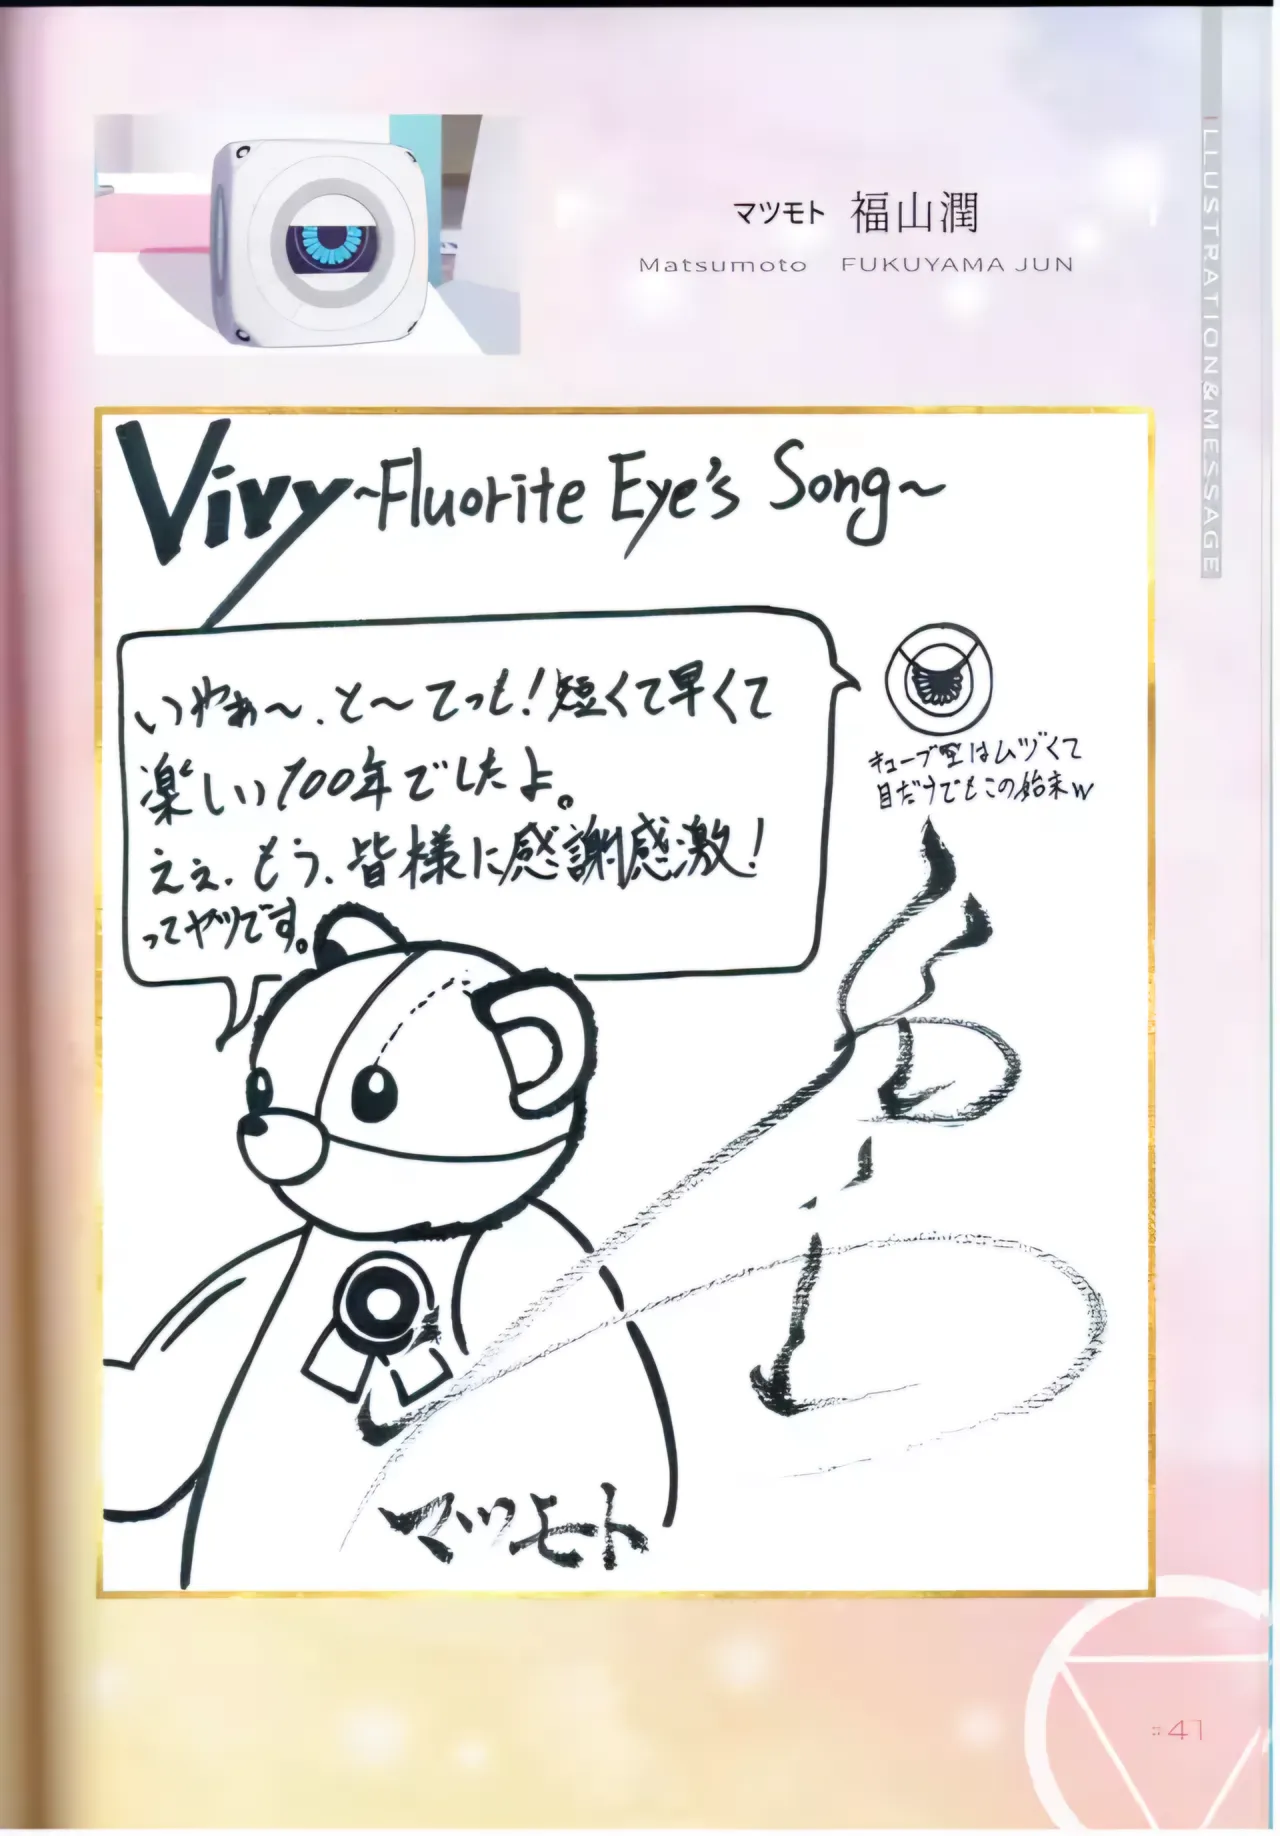 マツモト 福山潤
Matsumoto FUKUYAMA JUN
ILLUSTRATION&MESSAGE
Vivy ~Fluorite Eye's Song~
いやぁ〜、と〜てっも!短くて早くて
楽しい100年でしたよ。
ええ、もう、皆様に感謝感激!
ってヤツです。
キューブ型はムヅくて
目だけでもこの始末w
マツモト
41